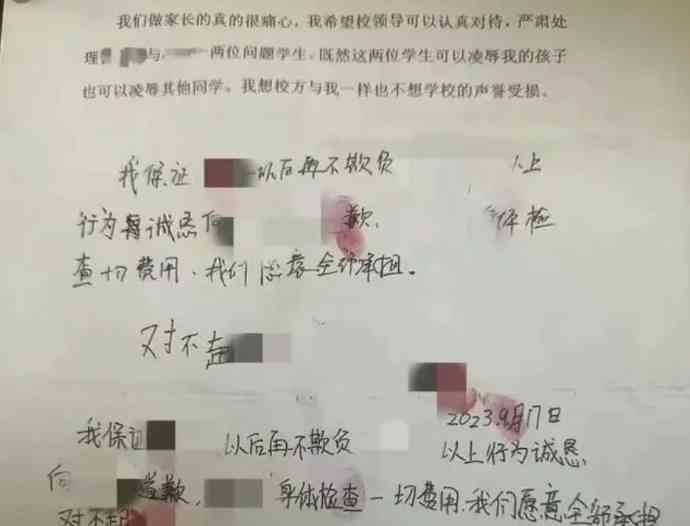 我们做家长的真的很痛心，我希望校领导可以认真对待，严肃处
理 与 两位问题学生。既然这两位学生可以凌辱我的孩子
也可以凌辱其他同学。我想校方与我一样也不想学校的声誉受损。
我保证 以后再不欺负 以上
行为 诚恳向 歉, 体检
查 切费用、我们 愿意全部承担。
对不起
2023.9月17日
我保证 以后再不欺负 以上行为诚恳
向 道歉, 身体检查一切费用、我们愿意全部承担
对不起